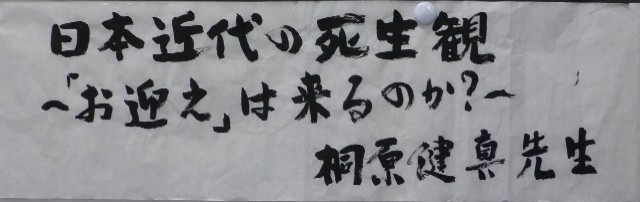 日本近代の死生観
～「お迎え」は来るのか?～
桐原健真先生